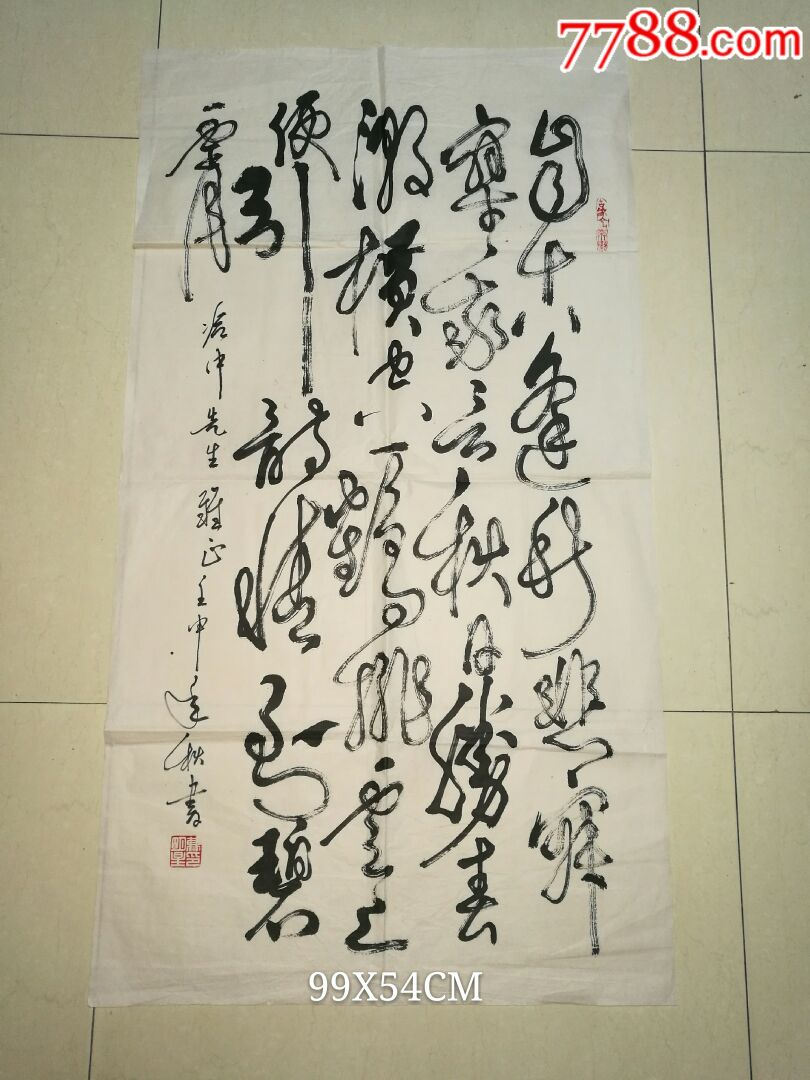 7788.com
自古逢秋悲寂
寥我言秋日勝春
潮横空一鶴排雲上
便引詩情到碧
霄
中先生雅正壬申年秋書
99X54CM